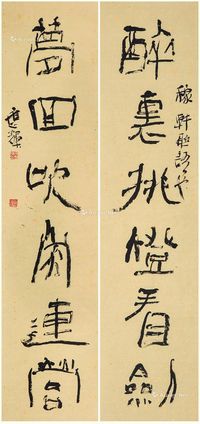 稼軒
醉裏挑燈看劍
夢回吹角連營